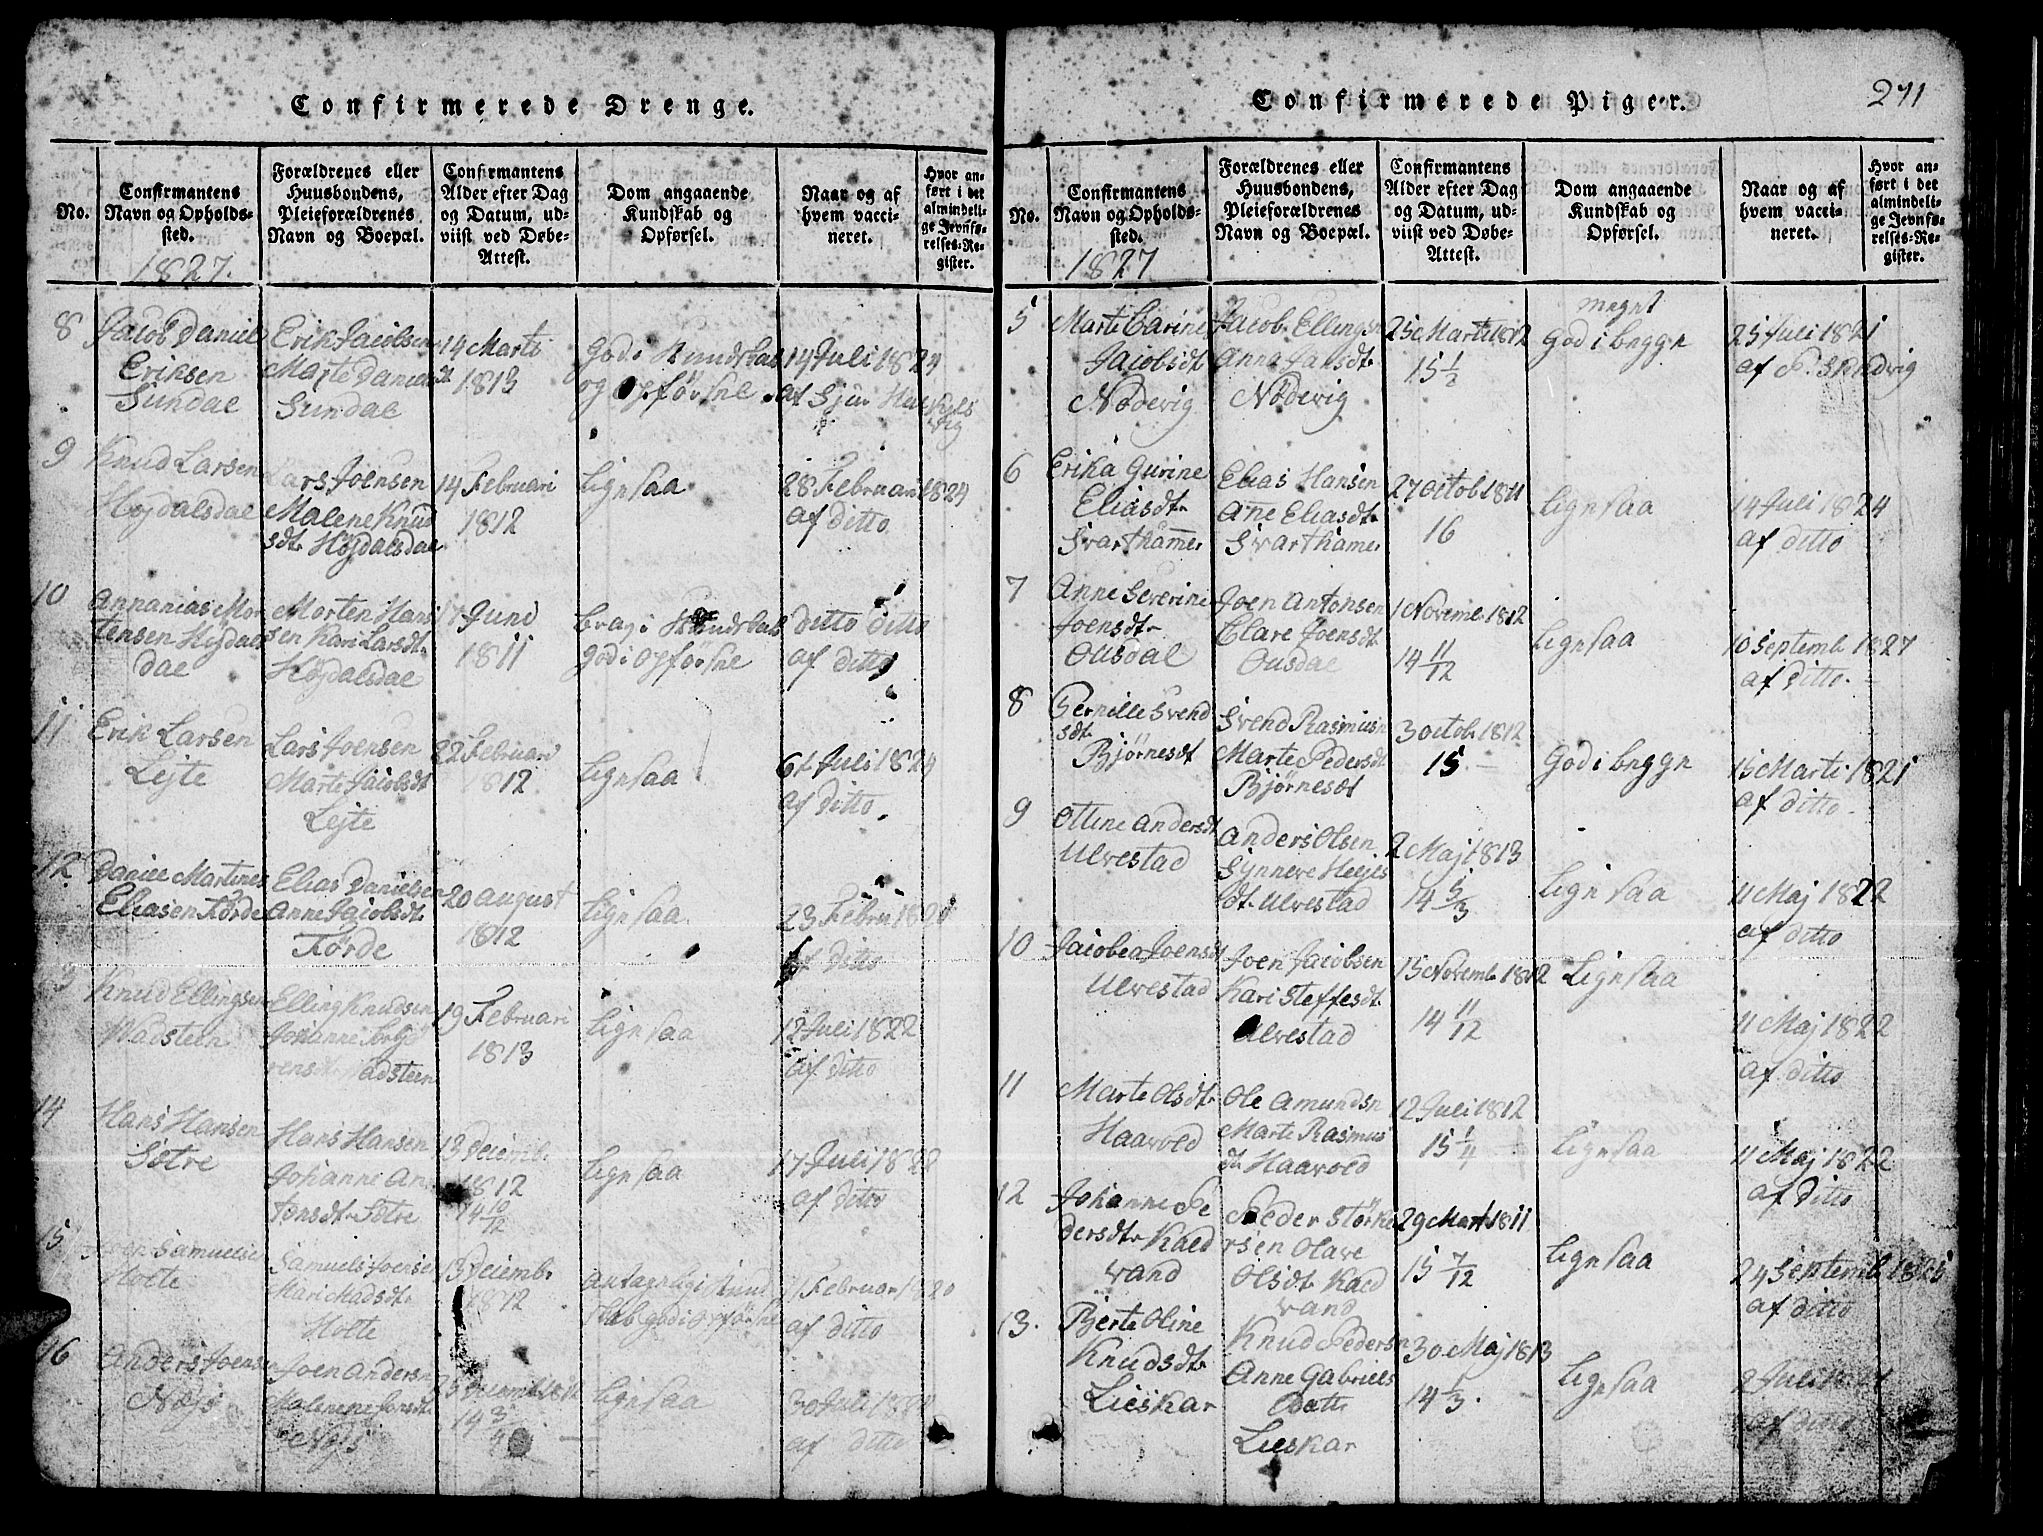 Confirmerede Drenge.
No.
Confirmantens
Navn og Opholds-
sted.
1827.
Forældrenes eller
Huusbondens,
Pleieforældrenes
Navn og Boepæl.
Confirmantens
Alder efter Dag
og Datum, ud-
viist ved Døbe-
Attest.
Dom angaaende
Kundskab og
Opførsel.
Naar og af
hvem vacci-
neret.
Hvor an-
ført i det
almindeli-
ge Jevnfø-
relses-Re-
gister.
8
Jacob Daniel
Eriksen
Sundal
Erik Jacobsen
Marte Daniels dt
Sundal
14 Marti
1813
God i Kundskab
og Opførsel
14 Juli 1824
af Sjur
9
Knud Larsen
Højdalsdal
Lars Joensen
Malene Knud
sdt. Højdalsdal
14 Februari
1812
Lignsaa
28 Februari 1824
af ditto
10
Annanias Mor
tensen Højdals
dal
Morten Hans
en Kari Larsdt.
Højdalsdal
17 Juni
1811
brav i Kundskab
god i Opførsel
ditto ditto
af ditto
11
Erik Larsen
Lejte
Lars Joensen
Marte Jacobsdt
Lejte
22 Februari
1812
Lignsaa
Juli 1824
af ditto.
12.
Daniel Martines
Eliasen Førde
Elias Danielsen
Anne Jacobsdt.
Førde
20 August
1812
Lignsaa
23 Febru 1820
af ditto
3
Knud Ellingsen
Vadsteen
Elling Knudsen
Johanne
Vadsteen
19 Februari
1813
Lignsaa
12 Juli 1822
af ditto
14
Hans Hansen
Sætre
Hans Hansen
Johanne An
tonsdt. Sætre
13 Decembr
1812
14 10/12
Lignsaa
17 Juli 1822
af ditto
15
Samuelse
Holte
Samuel Joensen
Mari Madsdt.
Holte
13 Decembr
1812
Antagelig i Kund
skab god i Opførsel
Februar 1820
af ditto
16
Anders Joensen
Nøjs
Joen Andersn
Malene Jensdt.
Nøjs
14 3/4
Lignsaa
30 Juli
af ditto
Confirmerede Piger.
271
No.
Confirmantens
Navn og Opholds-
sted.
1827
Forældrenes eller
Huusbondens,
Pleieforældrenes
Navn og Boepæl.
Confirmantens
Alder efter Dag
og Datum, ud-
viist ved Døbe-
Attest.
Dom angaaende
Kundskab og
Opførsel.
Naar og af
hvem vacci-
neret.
Hvor an-
ført i det
almindeli-
ge Jevnfø-
relses-Re-
gister.
5
Marte Carine
Jacobsdt
Nødevig
Jacob Ellingsn
Anna Jansdt.
Nødevig
25 Marti 1812
15 1/2
meget
God i begge
25 Juli 1821
af P.
6
Erika Gurine
Eliasdt.
Svarthamer
Elias Hansen
Ane Eliasdt.
Svarthamer
27 Octob 1811
16
Lignsaa
14 Juli 1824
af ditto
7
Anne Severine
Joensdt.
Ousdal
Joen Antonsen
Clare Joensdt.
Ousdal
1 Novemb 1812
14 11/12
Lignsaa
10 Septemb 1827
af ditto.
8
Pernille Svend
sdt.
Bjørnesdt
Svend Rasmusn
Marte Pedersdt.
Bjørnesdt
3 Octob 1812.
15
God i begge
15 Marti 1821
af ditto.
9
Ottine Andersdt.
Ulvestad
Anders Olsen
Synneve Hel
dt. Ulvestad
2 Maj 1813
14 1/3
Lignsaa
11 Maj 1822
af ditto
10
Jacobea Joensdt
Ulvestad
Joen Jacobsen
Kari Steffesdt.
Ulvestad
15 Novemb 1812
14 11/12
Lignsaa
11 Maj 1822
af ditto
11
Marte Olsdt.
Haavold
Ole Amundsn
Marte Rasmus
dt. Haavold
12 Juli 1812
15 1/4
Lignsaa
11 Maj 1822
af ditto
12
Johanne Pe
dersdt. Kald
vand
Peder Størke
rsen Olave
Olsdt. Kald
vand
29 Mart 1811
15 7/12
Lignsaa
24 Septemb 1825
af ditto
13.
Berte Oline
Knudsdt.
Lieskar
Knud Pedersn
Anne Gabriels
Datt.
Lieskar
30 Maj 1813
14 1/3.
Lignsaa
2 Juli
af ditto